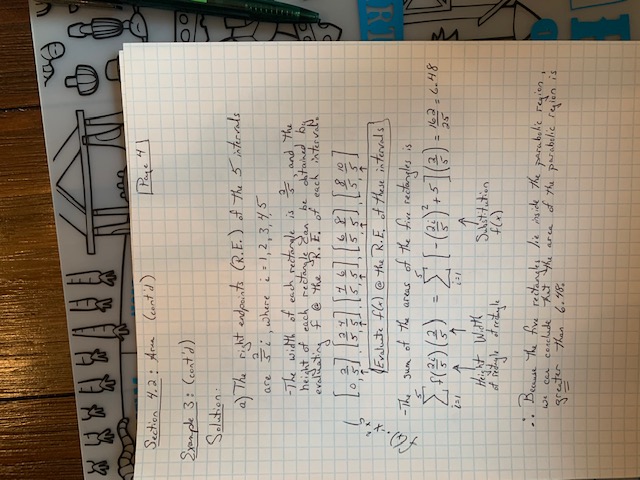 Section 4.2: Area (cont'd)
Page 4
Example 3: (cont'd)
Solution:
a) The right endpoints (R.E.) of the 5 intervals
are 2/5 i, where i = 1, 2, 3, 4, 5
- The width of each rectangle is 2/5, and the
height of each rectangle can be obtained by
evaluating f @ the R.E. of each interval.
[0, 2/5], [2/5, 4/5], [4/5, 6/5], [6/5, 8/5], [8/5, 10/5]
Evaluate f(x) @ the R.E. of these intervals
- The sum of the areas of the five rectangles is
5 Σ i=1 f(2i/5)(2/5) = 5 Σ i=1 [-(2i/5)² + 5](2/5) = 162/25 = 6.48
Height of rectangle
Width of rectangle
Substitution f(x)
∴ Because the five rectangles lie inside the parabolic region,
we can conclude that the area of the parabolic region is
greater than 6.48.